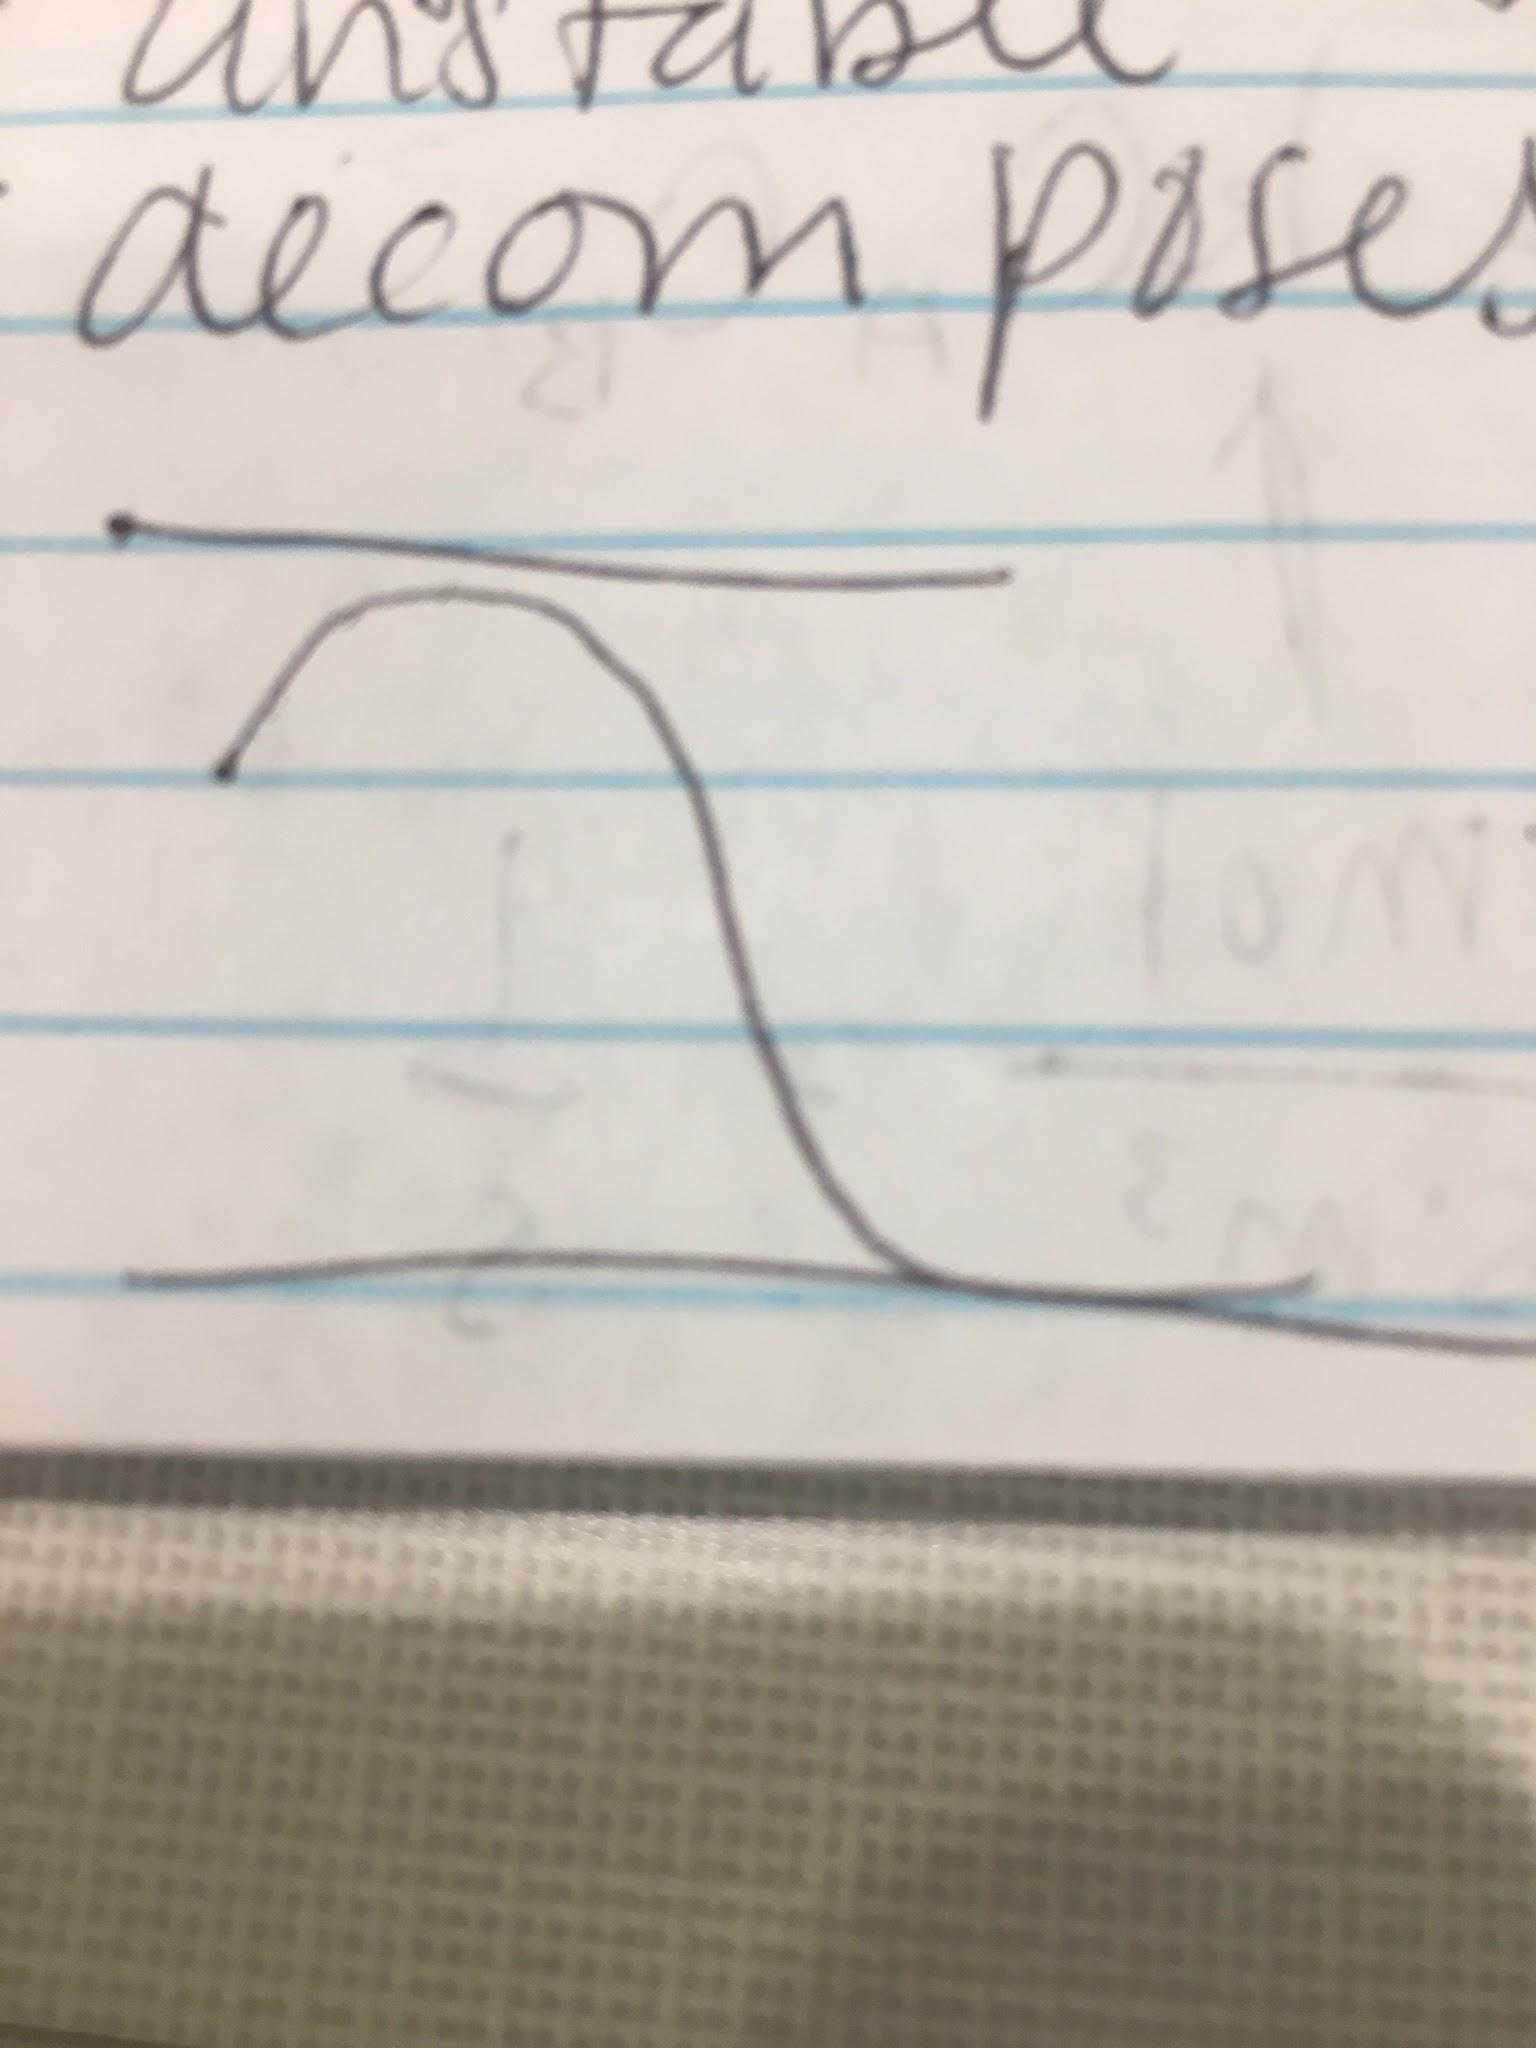 unstable
decomposes